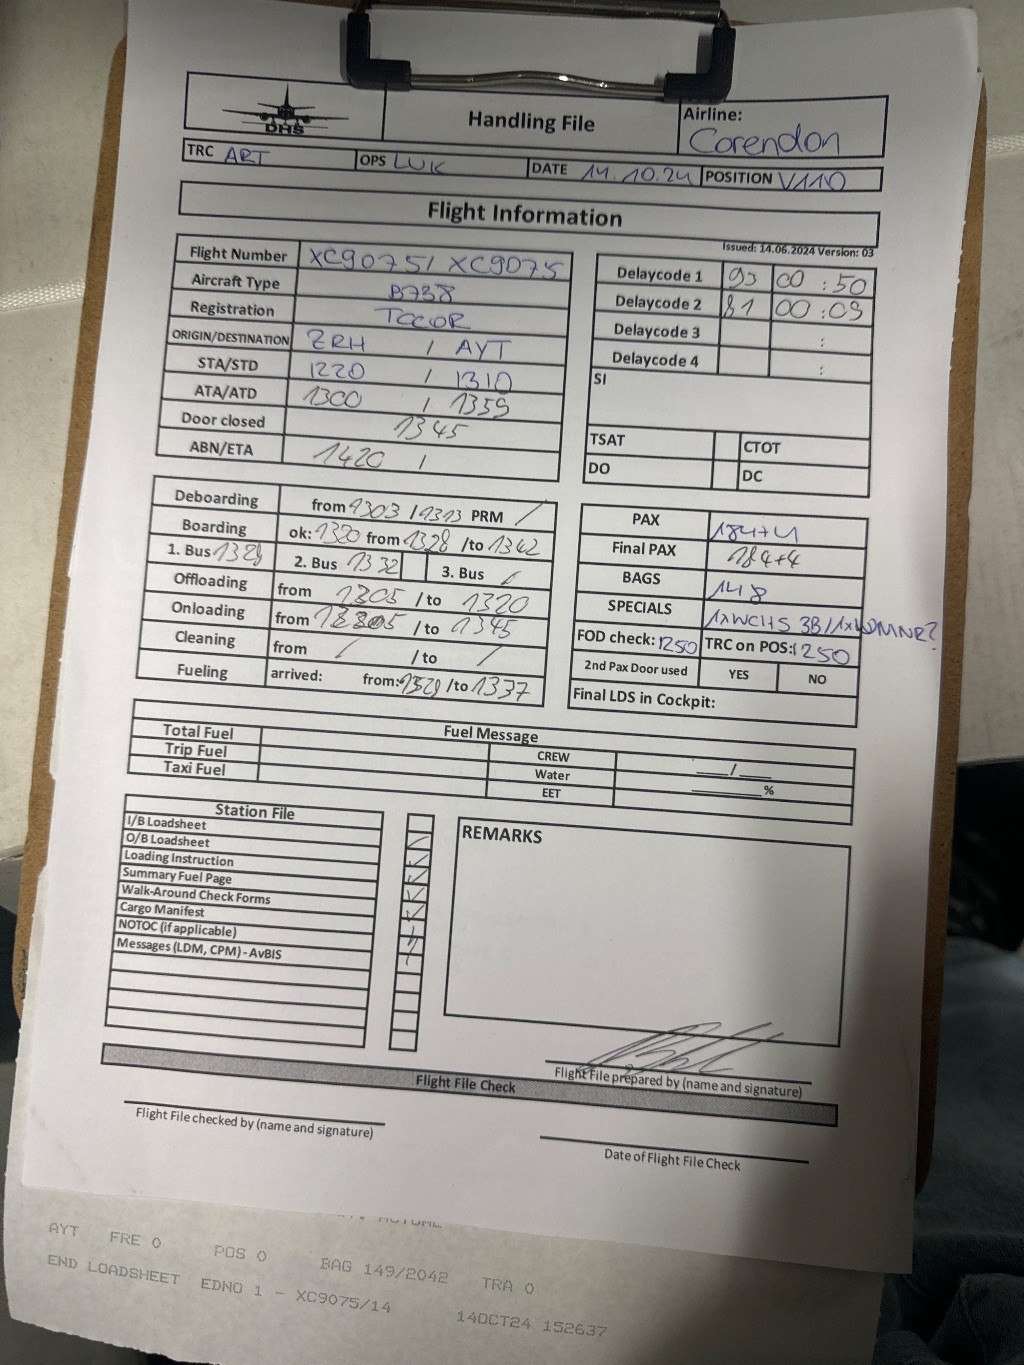 DHS
Handling File
Airline:
Corendon
TRC ART OPS LUK DATE 14.10.24 POSITION V110
Flight Information
Issued: 14.06.2024 Version: 03
Flight Number XC9075/ XC9075
Aircraft Type B738
Registration TCCOR
ORIGIN/DESTINATION ZRH / AYT
STA/STD 1220 / 1310
ATA/ATD 1300 / 1359
Door closed 1345
ABN/ETA 1420 /
Delaycode 1 93 00 : 50
Delaycode 2 81 00 : 09
Delaycode 3 :
Delaycode 4 :
SI
TSAT CTOT
DO DC
Deboarding from 1303 / 1313 PRM /
Boarding ok: 1320 from 1328 /to 1342
1. Bus 1329 2. Bus 1332 3. Bus /
Offloading from 1305 / to 1320
Onloading from / to 1345
Cleaning from / / to /
Fueling arrived: from: 1329 /to 1337
PAX 184+4
Final PAX 184+4
BAGS 148
SPECIALS 1xWCHS 3B/1x
FOD check: 1250 TRC on POS: 1250
2nd Pax Door used YES NO
Final LDS in Cockpit:
Fuel Message
Total Fuel CREW ___/___
Trip Fuel Water ______%
Taxi Fuel EET
Station File
I/B Loadsheet
O/B Loadsheet ✓
Loading Instruction ✓
Summary Fuel Page ✓
Walk-Around Check Forms ✓
Cargo Manifest ✓
NOTOC (if applicable)
Messages (LDM, CPM) - AvBIS
REMARKS
Flight File prepared by (name and signature)
Flight File Check
Flight File checked by (name and signature)
Date of Flight File Check
ACTUAL
AYT FRE 0 POS 0 BAG 149/2042 TRA 0
END LOADSHEET EDNO 1 - XC9075/14 14OCT24 152637